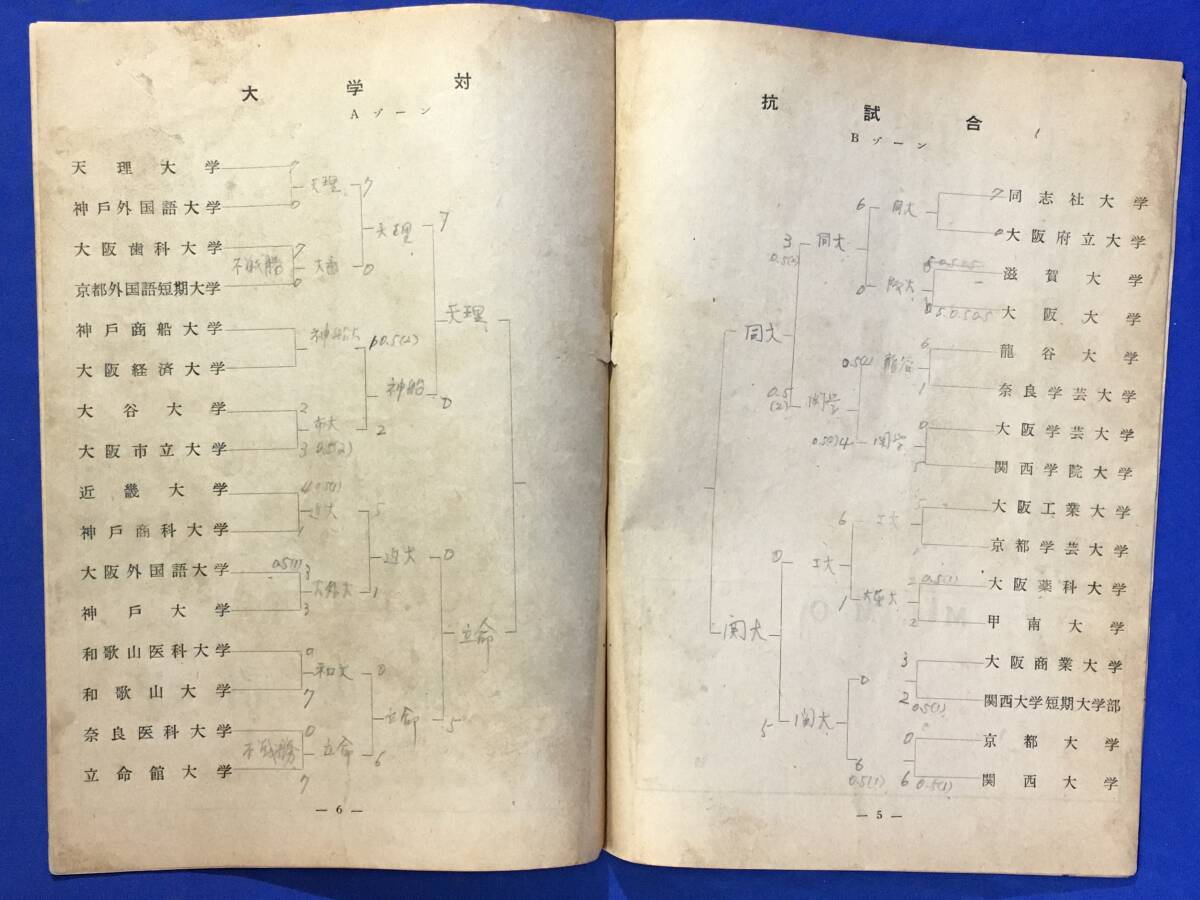 大学対
Aゾーン
天理大学
神戸外国語大学
大阪歯科大学
京都外国語短期大学
神戸商船大学
大阪経済大学
大谷大学
大阪市立大学
近畿大学
神戸商科大学
大阪外国語大学
神戸大学
和歌山医科大学
和歌山大学
奈良医科大学
立命館大学
天理 7
0
天理 7
7
不戦勝
大歯 0
0
天理
神船大
0.5(2)
神船 0
2
市大 2
3 0.5(2)
近大 5
近大 0
0.5(1)
大外大 1
3
立命
0
和大 0
7
立命 5
0
不戦勝 立命 6
7
— 6 —
抗試合
Bゾーン
同志社大学
大阪府立大学
滋賀大学
大阪大学
龍谷大学
奈良学芸大学
大阪学芸大学
関西学院大学
大阪工業大学
京都学芸大学
大阪薬科大学
甲南大学
大阪商業大学
関西大学短期大学部
京都大学
関西大学
6 同大 7
0
3 同大
0.5(2)
0 阪大
同大
0.5(2) 龍谷 6
1
0.5
(2) 関学
4 関学 0
5
6 工大
0 工大
1 大薬大 0.5(1)
2
関大
0 3
2 0.5(1)
5 関大
0
6
0.5(1) 6 0.5(1)
— 5 —